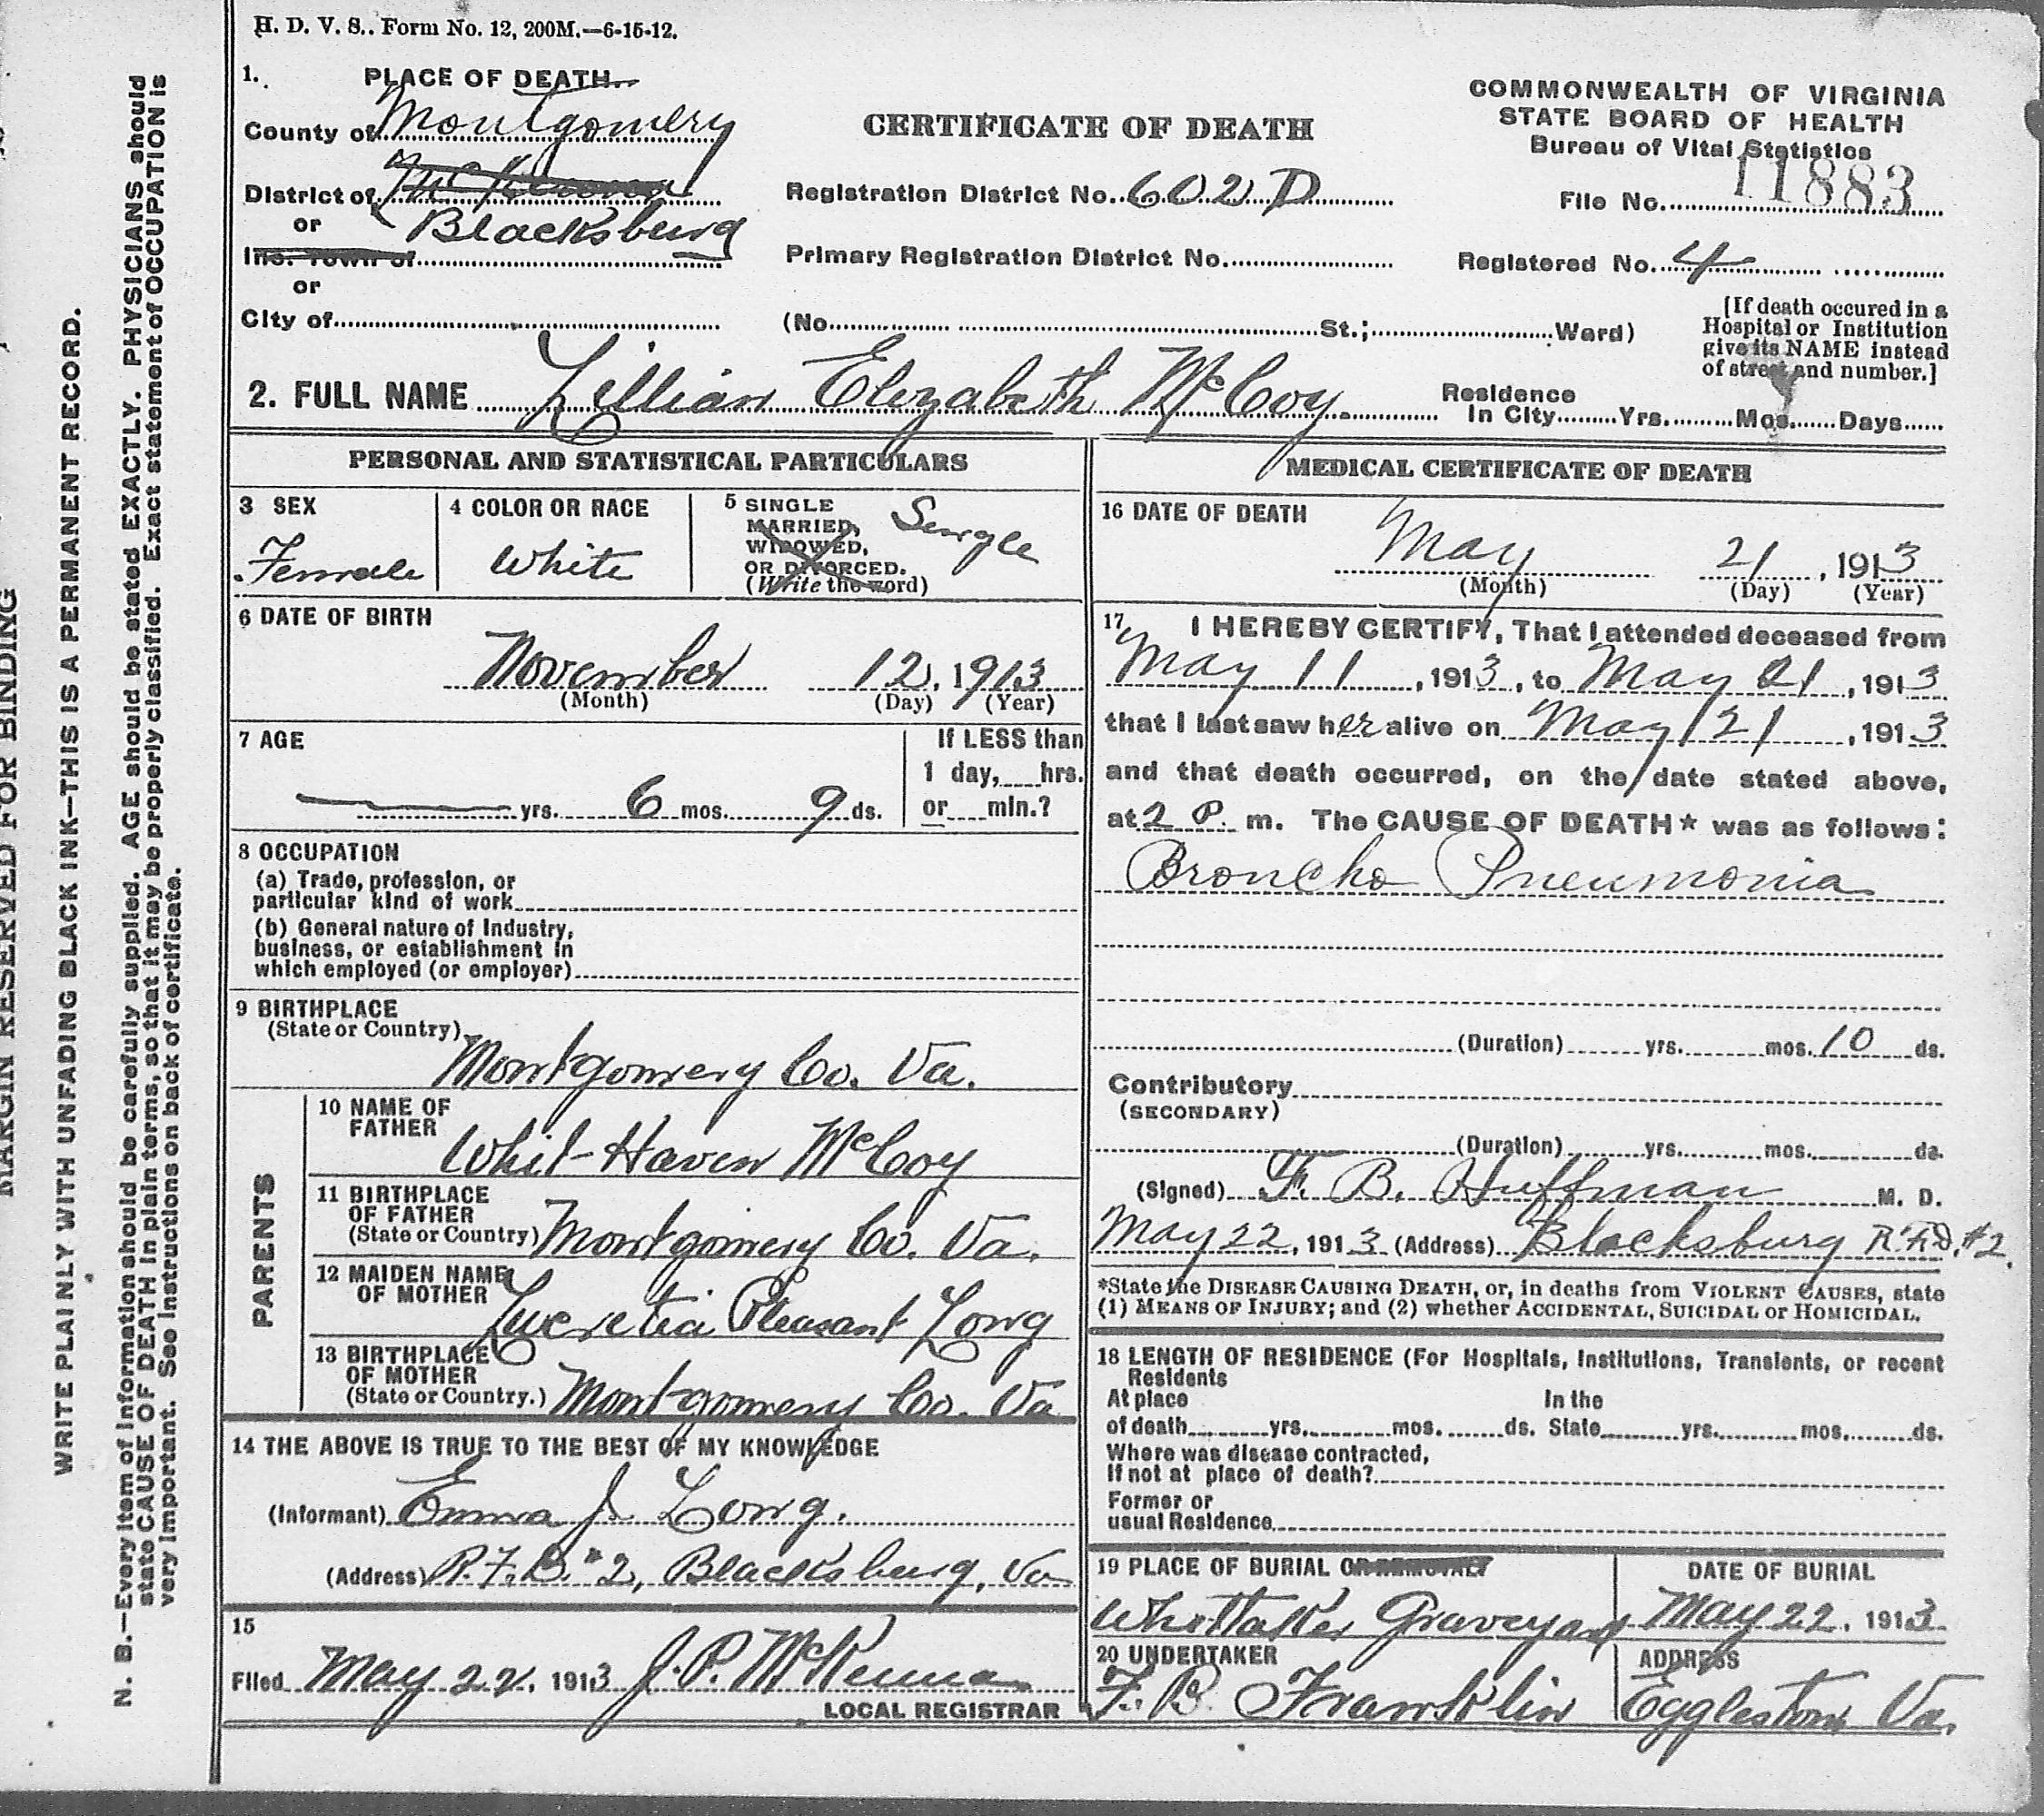 H. D. V. S.. Form No. 12, 200M.—6-15-12.
1. PLACE OF DEATH.
County of Montgomery
District of
or Blacksburg
Inc. Town of
or
City of
CERTIFICATE OF DEATH
Registration District No. 602 D
Primary Registration District No.
(No. St.; Ward)
COMMONWEALTH OF VIRGINIA
STATE BOARD OF HEALTH
Bureau of Vital Statistics
File No. 11883
Registered No. 4
[If death occured in a
Hospital or Institution
give its NAME instead
of street and number.]
2. FULL NAME Lillian Elizabeth McCoy.
Residence
In City Yrs. Mos. Days
PERSONAL AND STATISTICAL PARTICULARS
3 SEX
Female
4 COLOR OR RACE
White
5 SINGLE
MARRIED,
WIDOWED,
OR DIVORCED.
(Write the word)
Single
6 DATE OF BIRTH
November 12, 1913
(Month) (Day) (Year)
7 AGE
yrs. 6 mos. 9 ds.
If LESS than
1 day, hrs.
or min.?
8 OCCUPATION
(a) Trade, profession, or
particular kind of work
(b) General nature of Industry,
business, or establishment in
which employed (or employer)
9 BIRTHPLACE
(State or Country)
Montgomery Co. Va.
PARENTS
10 NAME OF
FATHER
Whit Haven McCoy
11 BIRTHPLACE
OF FATHER
(State or Country) Montgomery Co. Va.
12 MAIDEN NAME
OF MOTHER
Lucretia Pleasant Long
13 BIRTHPLACE
OF MOTHER
(State or Country.) Montgomery Co. Va
14 THE ABOVE IS TRUE TO THE BEST OF MY KNOWLEDGE
(Informant) Emma J. Long.
(Address) R.F.D. #2, Blacksburg, Va
15
Filed May 22, 1913 J. P. McKenna
LOCAL REGISTRAR
MEDICAL CERTIFICATE OF DEATH
16 DATE OF DEATH
May 21, 1913
(Month) (Day) (Year)
17 I HEREBY CERTIFY, That I attended deceased from
May 11, 1913, to May 21, 1913
that I last saw her alive on May 21, 1913
and that death occurred, on the date stated above,
at 2 P. m. The CAUSE OF DEATH* was as follows:
Broncho Pneumonia
(Duration) yrs. mos. 10 ds.
Contributory
(SECONDARY)
(Duration) yrs. mos. ds.
(Signed) F. B. Huffman M. D.
May 22, 1913 (Address) Blacksburg R.F.D. #2.
*State the DISEASE CAUSING DEATH, or, in deaths from VIOLENT CAUSES, state
(1) MEANS OF INJURY; and (2) whether ACCIDENTAL, SUICIDAL or HOMICIDAL.
18 LENGTH OF RESIDENCE (For Hospitals, Institutions, Transients, or recent
Residents
At place In the
of death yrs. mos. ds. State yrs. mos. ds.
Where was disease contracted,
If not at place of death?
Former or
usual Residence
19 PLACE OF BURIAL OR REMOVAL?
Whittaker Graveyard
DATE OF BURIAL
May 22, 1913
20 UNDERTAKER
F. B. Franklin
ADDRESS
Eggleston Va.
MARGIN RESERVED FOR BINDING
WRITE PLAINLY WITH UNFADING BLACK INK—THIS IS A PERMANENT RECORD.
N. B.—Every item of Information should be carefully supplied. AGE should be stated EXACTLY. PHYSICIANS should
state CAUSE OF DEATH in plain terms, so that it may be properly classified. Exact statement of OCCUPATION is
very important. See instructions on back of certificate.